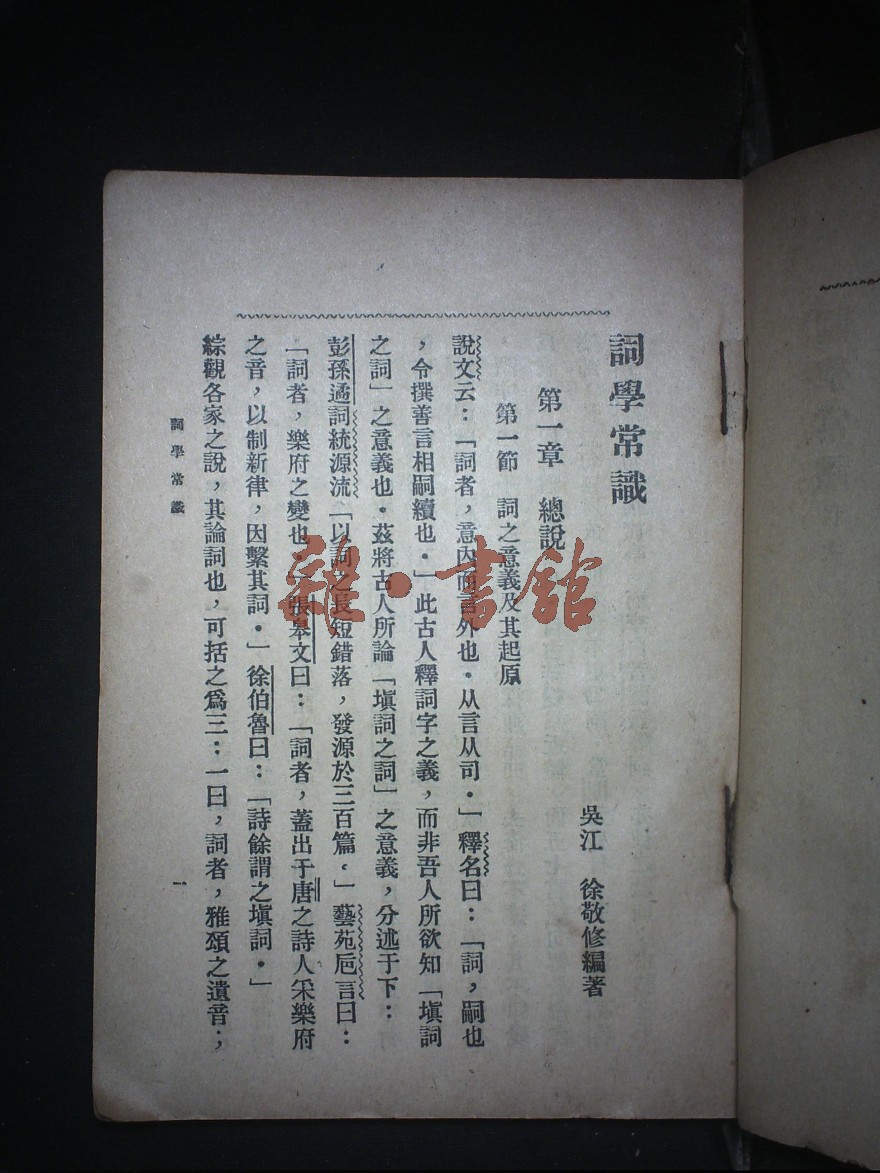 詞學常識
吳江　徐敬修編著
第一章　總說
第一節　詞之意義及其起原
說文云：「詞者，意內而言外也。从言从司。」釋名曰：「詞，嗣也
，令撰善言相嗣續也。」此古人釋詞字之義，而非吾人所欲知「塡詞
之詞」之意義也。茲將古人所論「塡詞之詞」之意義，分述于下：
彭孫遹詞統源流「以詞之長短錯落，發源於三百篇。」藝苑巵言曰：
「詞者，樂府之變也。」張皋文曰：「詞者，蓋出于唐之詩人采樂府
之音，以制新律，因繫其詞。」徐伯魯曰：「詩餘謂之塡詞。」
綜觀各家之說，其論詞也，可括之爲三：一曰，詞者，雅頌之遺音；
詞學常識
一
雜·書館